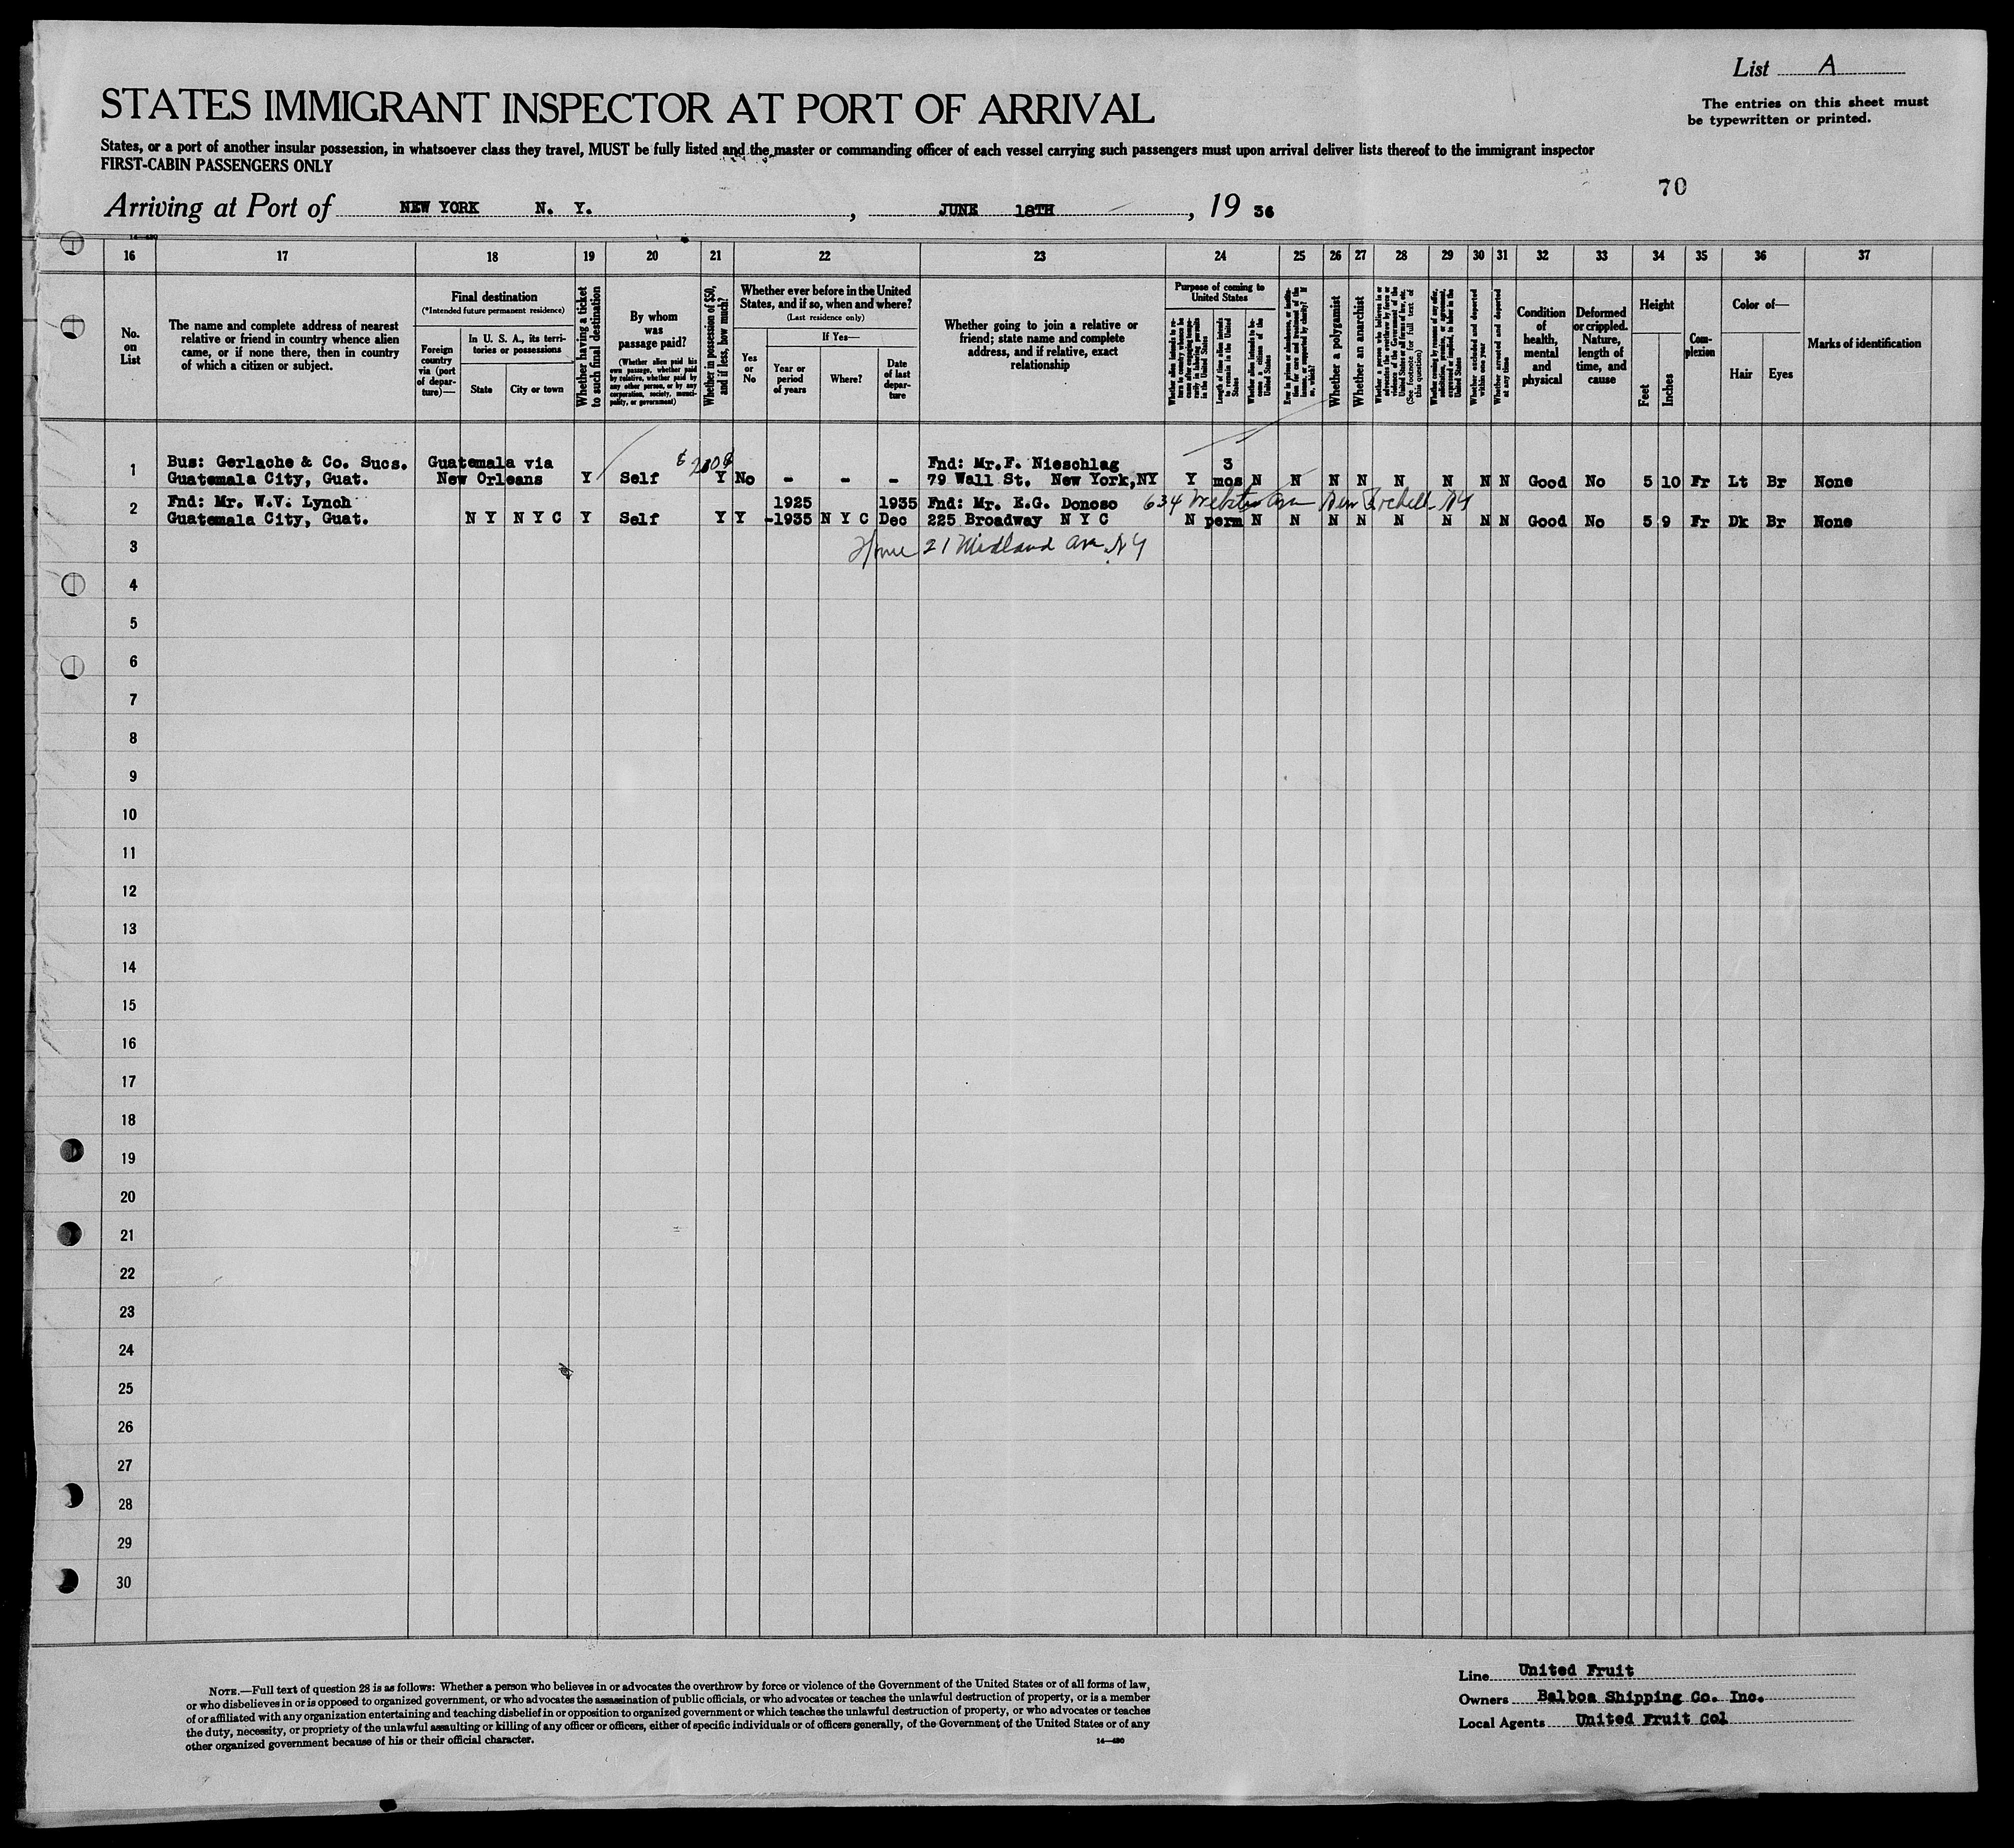 List A
The entries on this sheet must
be typewritten or printed.
STATES IMMIGRANT INSPECTOR AT PORT OF ARRIVAL
States, or a port of another insular possession, in whatsoever class they travel, MUST be fully listed and the master or commanding officer of each vessel carrying such passengers must upon arrival deliver lists thereof to the immigrant inspector
FIRST-CABIN PASSENGERS ONLY
70
Arriving at Port of NEW YORK N. Y. , JUNE 18TH , 19 36
14-490
16 17 18 19 20 21 22 23 24 25 26 27 28 29 30 31 32 33 34 35 36 37
No. on List
The name and complete address of nearest relative or friend in country whence alien came, or if none there, then in country of which a citizen or subject.
Final destination
(*Intended future permanent residence)
Foreign country via (port of departure)—
In U. S. A., its territories or possessions
State
City or town
Whether having a ticket to such final destination
By whom was passage paid?
(Whether alien paid his own passage, whether paid by relative, whether paid by any other person, or by any corporation, society, municipality, or government)
Whether in possession of $50, and if less, how much?
Whether ever before in the United States, and if so, when and where?
(Last residence only)
Yes or No
If Yes—
Year or period of years
Where?
Date of last departure
Whether going to join a relative or friend; state name and complete address, and if relative, exact relationship
Purpose of coming to United States
Whether alien intends to return to country whence he came after engaging temporarily in laboring pursuits in the United States
Length of time alien intends to remain in the United States
Whether alien intends to become a citizen of the United States
Ever in prison or almshouse, or institution for care and treatment of the insane, or supported by charity? If so, which?
Whether a polygamist
Whether an anarchist
Whether a person who believes in or advocates the overthrow by force or violence of the Government of the United States or all forms of law, etc. (See footnote for full text of this question)
Whether coming by reason of any offer, solicitation, promise, or agreement, expressed or implied, to labor in the United States
Whether excluded and deported within one year
Whether arrested and deported at any time
Condition of health, mental and physical
Deformed or crippled. Nature, length of time, and cause
Height
Feet
Inches
Complexion
Color of—
Hair
Eyes
Marks of identification
1 Bus: Gerlache & Co. Sucs. Guatemala via $ 200$ Fnd: Mr.F. Nieschlag 3
Guatemala City, Guat. New Orleans Y Self Y No - - - 79 Wall St. New York,NY Y mos N N N N N N N N Good No 5 10 Fr Lt Br None
2 Fnd: Mr. W.V. Lynch 1925 1935 Fnd: Mr. E.G. Donoso 634 Webster Ave New Rochelle NY
Guatemala City, Guat. N Y N Y C Y Self Y Y -1935 N Y C Dec 225 Broadway N Y C N perm N N N N N N N N Good No 5 9 Fr Dk Br None
3 Home 21 Midland Ave. N Y
4
5
6
7
8
9
10
11
12
13
14
15
16
17
18
19
20
21
22
23
24
25
26
27
28
29
30
NOTE.—Full text of question 28 is as follows: Whether a person who believes in or advocates the overthrow by force or violence of the Government of the United States or of all forms of law,
or who disbelieves in or is opposed to organized government, or who advocates the assassination of public officials, or who advocates or teaches the unlawful destruction of property, or is a member
of or affiliated with any organization entertaining and teaching disbelief in or opposition to organized government or which teaches the unlawful destruction of property, or who advocates or teaches
the duty, necessity, or propriety of the unlawful assaulting or killing of any officer or officers, either of specific individuals or of officers generally, of the Government of the United States or of any
other organized government because of his or their official character.
14-490
Line United Fruit
Owners Balboa Shipping Co. Inc.
Local Agents United Fruit Col